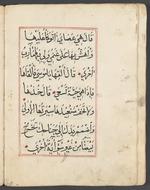 قَالَ هِيَ عَصَايَ أَتَوَكَّؤُا عَلَيْهَا
وَأَهُشُّ بِهَا عَلَى غَنَمِي وَلِيَ فِيهَا مَآرِبُ
أُخْرَى قَالَ أَلْقِهَا يَا مُوسَى فَأَلْقَاهَا
فَإِذَا هِيَ حَيَّةٌ تَسْعَى قَالَ خُذْهَا
وَلَا تَخَفْ سَنُعِيدُهَا سِيرَتَهَا الْأُولَى
وَاضْمُمْ يَدَكَ إِلَى جَنَاحِكَ تَخْرُجْ
بَيْضَاءَ مِنْ غَيْرِ سُوءٍ آيَةً أُخْرَى